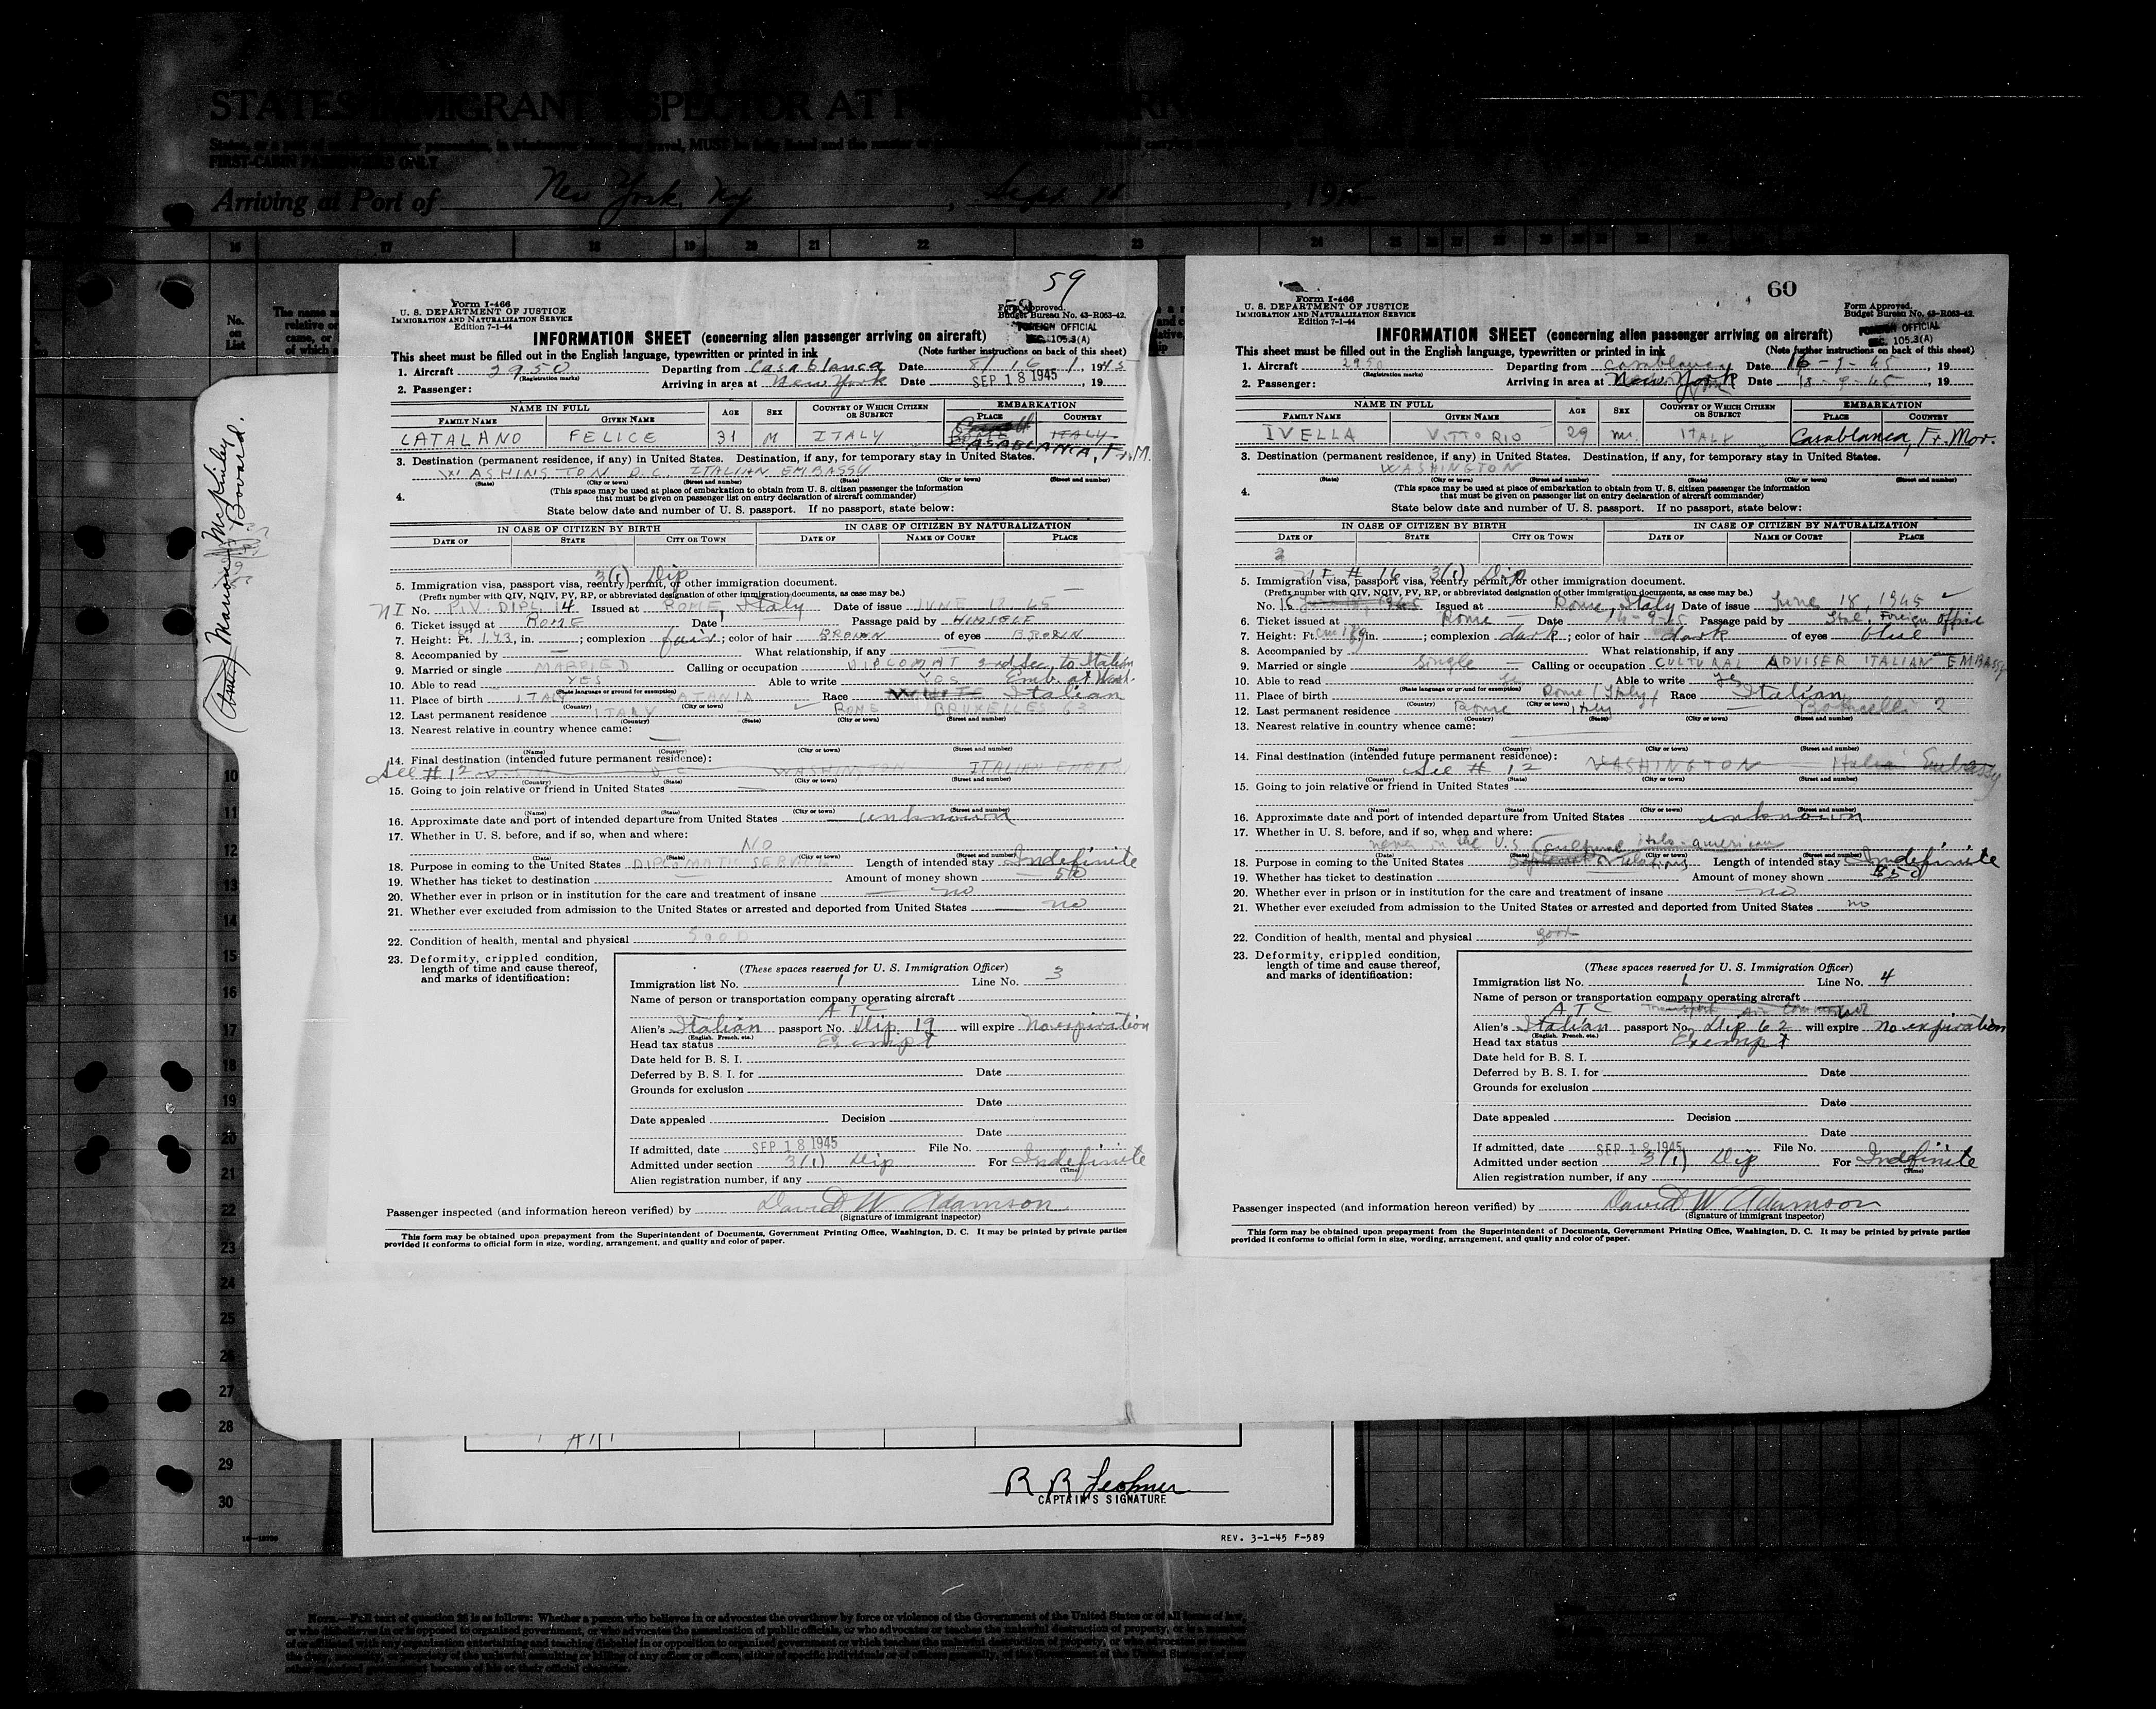 STATES IMMIGRANT INSPECTOR AT
FIRST-CABIN PASSENGERS ONLY
Arriving at Port of New York, NY, Sept. , 19
16 17 18 19 20 21 22 23 24
No. on List
(Aunt) Marion McKinley
Bovard.
59
Form I-466
U. S. DEPARTMENT OF JUSTICE
IMMIGRATION AND NATURALIZATION SERVICE
Edition 7-1-44
Form Approved.
Budget Bureau No. 43-R063-42.
FOREIGN OFFICIAL
SEC. 105.3(A)
INFORMATION SHEET (concerning alien passenger arriving on aircraft)
This sheet must be filled out in the English language, typewritten or printed in ink (Note further instructions on back of this sheet)
1. Aircraft 2950 Departing from Casablanca Date , 1945
(Registration marks)
2. Passenger: Arriving in area at New York Date SEP 18 1945, 19
NAME IN FULL AGE SEX COUNTRY OF WHICH CITIZEN OR SUBJECT EMBARKATION
FAMILY NAME GIVEN NAME PLACE COUNTRY
CATALANO FELICE 31 M ITALY ITALY
CASABLANCA, Fr. M.
3. Destination (permanent residence, if any) in United States. Destination, if any, for temporary stay in United States.
WASHINGTON D.C. ITALIAN EMBASSY
(State) (City or town) (Street and number) (State) (City or town) (Street and number)
4. (This space may be used at place of embarkation to obtain from U. S. citizen passenger the information
that must be given on passenger list on entry declaration of aircraft commander)
State below date and number of U. S. passport. If no passport, state below:
IN CASE OF CITIZEN BY BIRTH IN CASE OF CITIZEN BY NATURALIZATION
DATE OF STATE CITY OR TOWN DATE OF NAME OF COURT PLACE
3(1) Dip
5. Immigration visa, passport visa, reentry permit, or other immigration document.
(Prefix number with QIV, NQIV, PV, RP, or abbreviated designation of other immigration documents, as case may be.)
NI No. P.V. DIPL. 14 Issued at ROME, Italy Date of issue JUNE 18, 45
6. Ticket issued at ROME Date Passage paid by HIMSELF
7. Height: Ft. 1.73, in. ; complexion fair; color of hair BROWN of eyes BROWN
8. Accompanied by What relationship, if any
9. Married or single MARRIED Calling or occupation DIPLOMAT 2nd Sec. to Italian
10. Able to read YES Able to write YES Emb. at Wash.
(State language or ground for exemption)
11. Place of birth ITALY CATANIA Race WHITE Italian
(Country) (City or town)
12. Last permanent residence ITALY ROME BRUXELLES 63
(Country) (State) (City or town) (Street and number)
13. Nearest relative in country whence came:
(Name) (Country) (City or town) (Street and number)
14. Final destination (intended future permanent residence):
See # 12 WASHINGTON ITALIAN EMBASSY
(Country) (State) (City or town) (Street and number)
15. Going to join relative or friend in United States
(Name) (State) (City or town) (Street and number)
16. Approximate date and port of intended departure from United States unknown
17. Whether in U. S. before, and if so, when and where:
NO
(Date) (State) (City or town) (Street and number)
18. Purpose in coming to the United States DIPLOMATIC SERVICE Length of intended stay Indefinite
19. Whether has ticket to destination Amount of money shown 50
20. Whether ever in prison or in institution for the care and treatment of insane no
21. Whether ever excluded from admission to the United States or arrested and deported from United States no
22. Condition of health, mental and physical GOOD
23. Deformity, crippled condition,
length of time and cause thereof,
and marks of identification:
(These spaces reserved for U. S. Immigration Officer)
Immigration list No. 1 Line No. 3
Name of person or transportation company operating aircraft
ATC
Alien's Italian passport No. Dip. 19 will expire No expiration
(English, French, etc.)
Head tax status Exempt
Date held for B. S. I.
Deferred by B. S. I. for Date
Grounds for exclusion
Date
Date appealed Decision
Date
If admitted, date SEP 18 1945 File No.
Admitted under section 3(1) Dip For Indefinite
(Time)
Alien registration number, if any
Passenger inspected (and information hereon verified) by David W Adamson
(Signature of immigrant inspector)
This form may be obtained upon prepayment from the Superintendent of Documents, Government Printing Office, Washington, D. C. It may be printed by private parties
provided it conforms to official form in size, wording, arrangement, and quality and color of paper.
60
Form I-466
U. S. DEPARTMENT OF JUSTICE
IMMIGRATION AND NATURALIZATION SERVICE
Edition 7-1-44
Form Approved.
Budget Bureau No. 43-R063-42.
FOREIGN OFFICIAL
SEC. 105.3(A)
INFORMATION SHEET (concerning alien passenger arriving on aircraft)
This sheet must be filled out in the English language, typewritten or printed in ink (Note further instructions on back of this sheet)
1. Aircraft 2950 Departing from Casablanca Date 16-9-45, 19
(Registration marks)
2. Passenger: Arriving in area at New York Date 18-9-45, 19
NAME IN FULL AGE SEX COUNTRY OF WHICH CITIZEN OR SUBJECT EMBARKATION
FAMILY NAME GIVEN NAME PLACE COUNTRY
IVELLA VITTORIO 29 m. ITALY Casablanca, Fr. Mor.
3. Destination (permanent residence, if any) in United States. Destination, if any, for temporary stay in United States.
WASHINGTON
(State) (City or town) (Street and number) (State) (City or town) (Street and number)
4. (This space may be used at place of embarkation to obtain from U. S. citizen passenger the information
that must be given on passenger list on entry declaration of aircraft commander)
State below date and number of U. S. passport. If no passport, state below:
IN CASE OF CITIZEN BY BIRTH IN CASE OF CITIZEN BY NATURALIZATION
DATE OF STATE CITY OR TOWN DATE OF NAME OF COURT PLACE
# 16 3(1) Dip
5. Immigration visa, passport visa, reentry permit, or other immigration document.
(Prefix number with QIV, NQIV, PV, RP, or abbreviated designation of other immigration documents, as case may be.)
No. 16 Issued at Rome, Italy Date of issue June 18, 1945
6. Ticket issued at Rome Date 14-9-45 Passage paid by Foreign Office
7. Height: Ft. in. ; complexion dark; color of hair dark of eyes blue
8. Accompanied by What relationship, if any
9. Married or single Single Calling or occupation CULTURAL ADVISER ITALIAN EMBASSY
10. Able to read Able to write yes
(State language or ground for exemption)
11. Place of birth Rome (Italy) Race Italian
(Country) (City or town)
12. Last permanent residence Rome Italy Botticelli 2
(Country) (State) (City or town) (Street and number)
13. Nearest relative in country whence came:
(Name) (Country) (City or town) (Street and number)
14. Final destination (intended future permanent residence):
See # 12 WASHINGTON Italian Embassy
(Country) (State) (City or town) (Street and number)
15. Going to join relative or friend in United States
(Name) (State) (City or town) (Street and number)
16. Approximate date and port of intended departure from United States unknown
17. Whether in U. S. before, and if so, when and where:
never in the U.S. italo-american
(Date) (State) (City or town) (Street and number)
18. Purpose in coming to the United States relations Length of intended stay Indefinite
19. Whether has ticket to destination Amount of money shown
20. Whether ever in prison or in institution for the care and treatment of insane no
21. Whether ever excluded from admission to the United States or arrested and deported from United States no
22. Condition of health, mental and physical good
23. Deformity, crippled condition,
length of time and cause thereof,
and marks of identification:
(These spaces reserved for U. S. Immigration Officer)
Immigration list No. 1 Line No. 4
Name of person or transportation company operating aircraft
ATC Transport Air Command
Alien's Italian passport No. Dip 62 will expire no expiration
(English, French, etc.)
Head tax status Exempt
Date held for B. S. I.
Deferred by B. S. I. for Date
Grounds for exclusion
Date
Date appealed Decision
Date
If admitted, date SEP 18 1945 File No.
Admitted under section 3(1) Dip For Indefinite
(Time)
Alien registration number, if any
Passenger inspected (and information hereon verified) by David W Adamson
(Signature of immigrant inspector)
This form may be obtained upon prepayment from the Superintendent of Documents, Government Printing Office, Washington, D. C. It may be printed by private parties
provided it conforms to official form in size, wording, arrangement, and quality and color of paper.
10
11
12
13
14
15
16
17
18
19
20
21
22
23
24
25
26
27
28
29
30
CAPTAIN'S SIGNATURE
REV. 3-1-45 F-589
NOTE.—Full text of question 26 is as follows: Whether a person who believes in or advocates the overthrow by force or violence of the Government of the United States or of all forms of law,